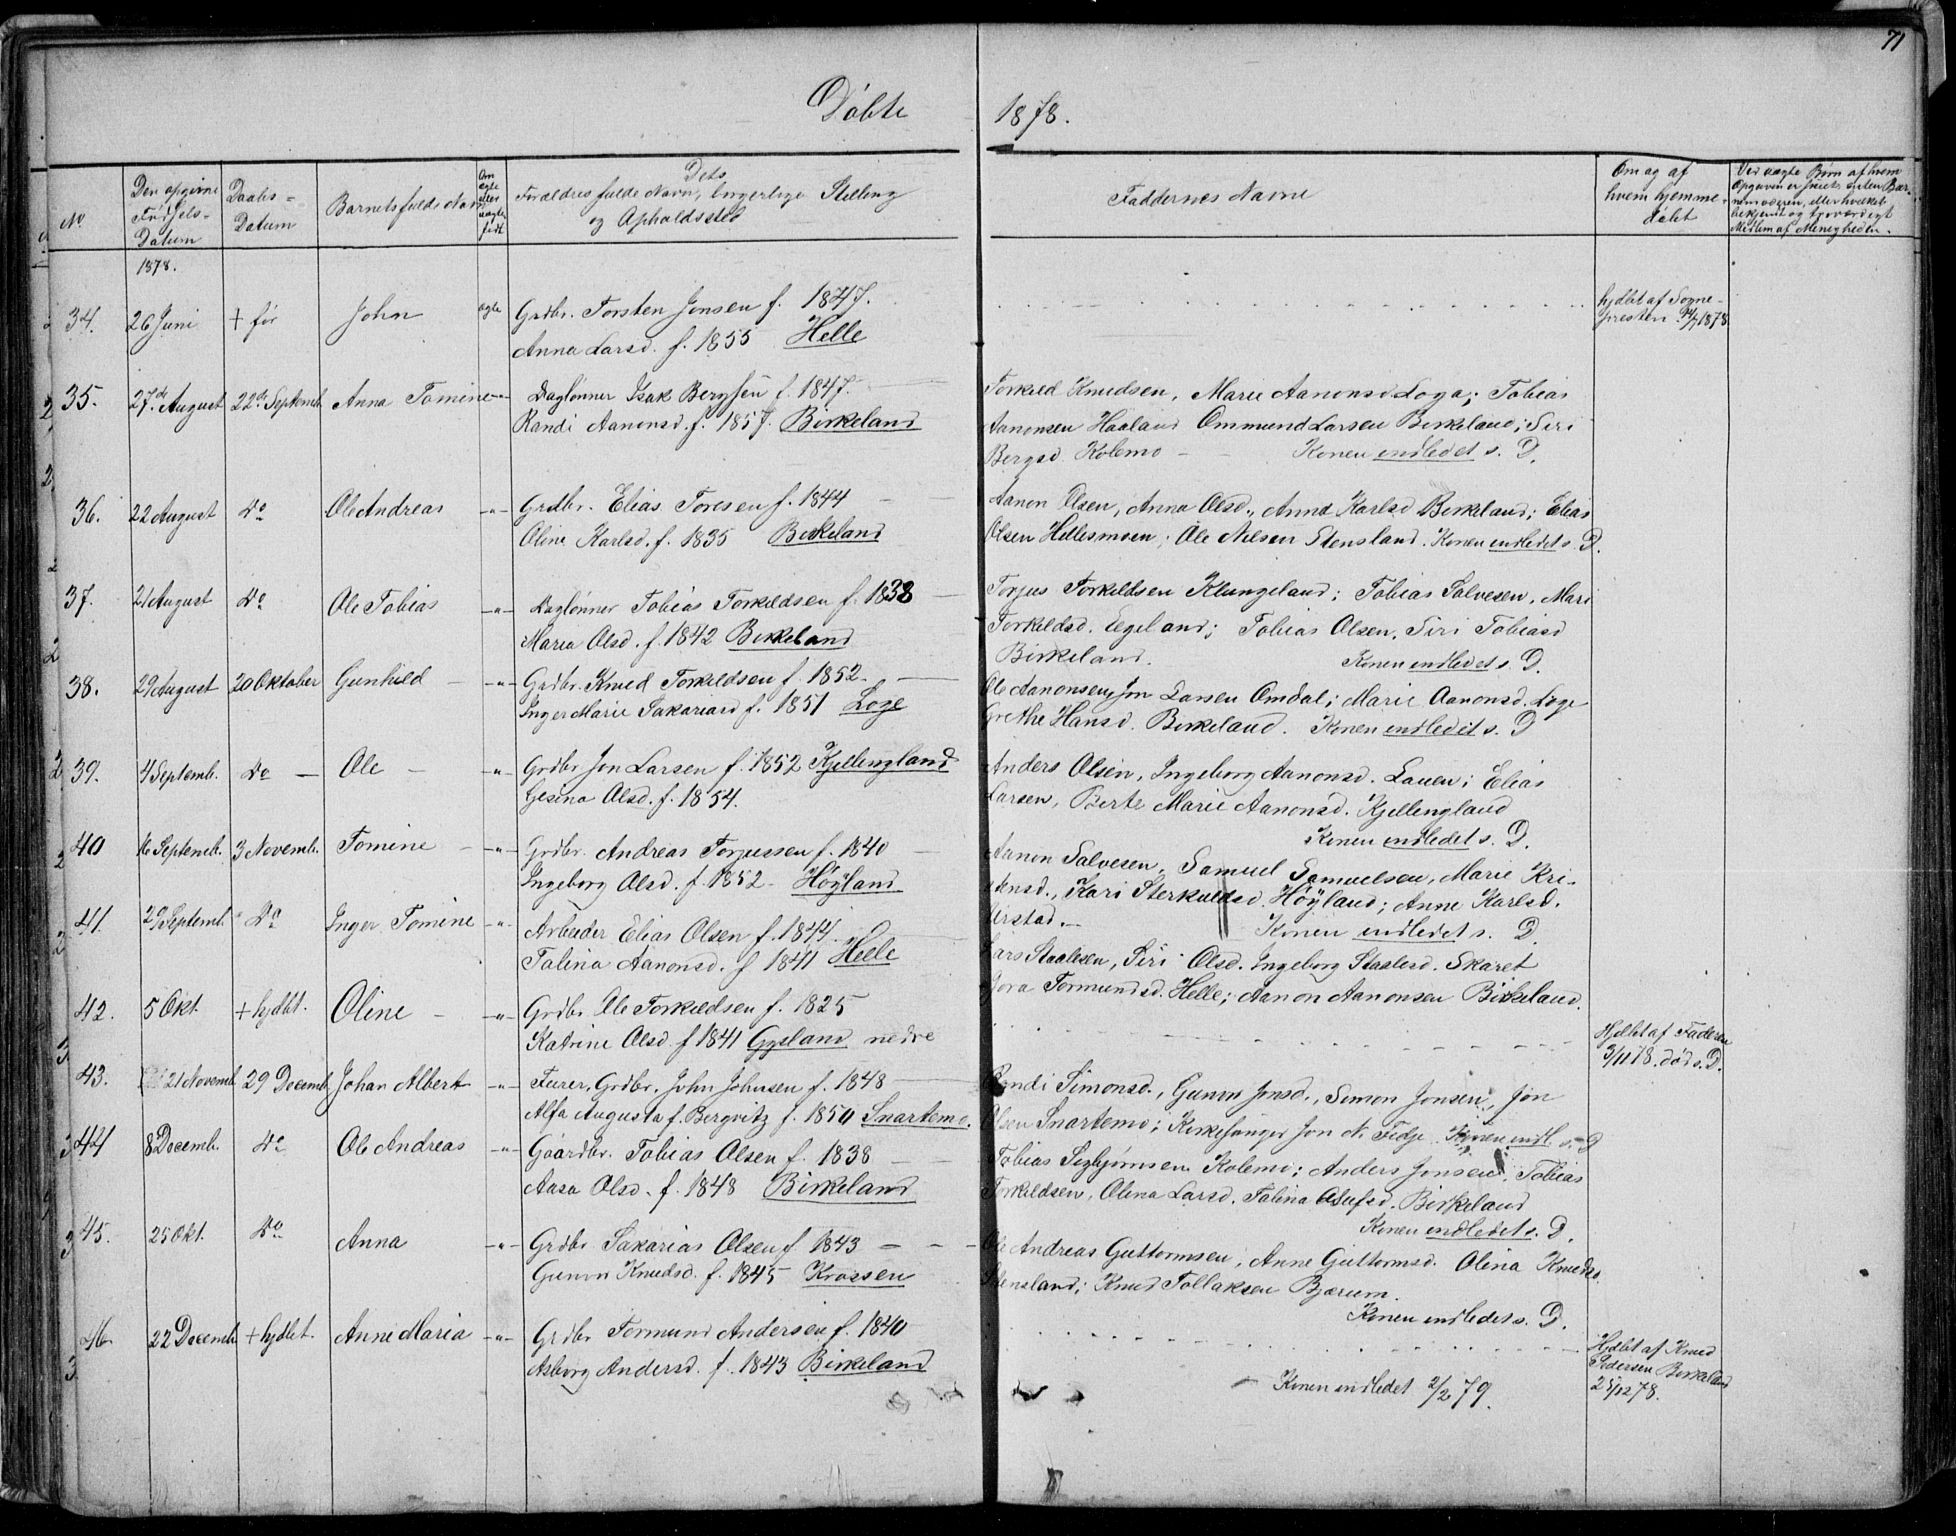 71
Döbte 1878.
No.
Den opgivne
Födsels-
Datum
Daabs-
Datum
Barnets fulde Navn
Om
ægte
eller
uægte
født
Dets
Forældres fulde Navn, borgerlige Stilling
og Opholdssted
Faddernes Navne
Om og af
hvem hjemme-
døbt
Ved uægte Børn af hvem
Opgaven er skeet, enten Bar-
nemoderen, eller hvilket
bekjendt og troværdigt
Medlem af Menigheden.
1878.
34. 26 Juni + før John ægte Grdbr. Torsten Jonsen f. 1847.
Anna Larsd. f. 1855 Helle
hjdbt af Sogne-
presten 1878
35. 27de August 22de Septemb. Anna Tomine -"- Daglönner Isak Bergsen f. 1847.
Randi Aanonsd. f. 1857. Birkeland
Torkild Knudsen, Marie Aanonsd Loga; Tobias
Aanonsen Haaland Ommund Larsen Birkeland; Siri
Bergsd. Kolemo - Konen indledet s. D.
36. 22 August Do Ole Andreas -"- Grdbr. Elias Toresen f. 1844
Oline Karlsd. f. 1835 Birkeland
Aanon Olsen, Anna Olsd., Anna Karlsd Birkeland; Elias
Olsen Hellesmoen; Ole Nilsen Stensland. Konen indledet s. D.
37. 21 August Do Ole Tobias -"- Daglönner Tobias Torkildsen f. 1838
Maria Olsd. f. 1842 Birkeland
Torjus Torkildsen Klungeland; Tobias Salvesen, Mari
Torkildsd. Egeland; Tobias Olsen, Siri Tobiasd
Birkeland. Konen indledet s. D.
38. 29 August 20 Oktober Gunhild -"- Grdbr. Knud Torkildsen f. 1852
Inger Marie Sakariasd f. 1851 Loge
Ole Aanonsen, Jon Larsen Omdal; Marie Aanonsd. Loge
Grethe Hansd. Birkeland. Konen indledet s. D
39. 4 Septemb. Do - Ole - -"- Grdbr Jon Larsen f. 1852 Kjellengland
Gesina Olsd. f. 1854.
Anders Olsen, Ingeborg Aanonsd. Lauen; Elias
Larsen, Berte Marie Aanonsd. Kjellengland
Konen indledet s. D.
40 16 Septemb. 3 Novemb. Tomine -"- Grdbr. Andreas Torjussen f. 1840
Ingeborg Olsd. f. 1852 - Höyland
Aanon Salvesen, Samuel Samuelsen, Marie Kri-
stensd., Kari Sterkuldsd. Höyland; Anne Karlsd.
Urstad. - Konen indledet s. D.
41. 29 Septemb. Do Inger Tomine -"- Arbeider Elias Olsen f. 1844.
Talina Aanonsd. f 1841 Helle
Lars Staalesen, Siri Olsd. Ingeborg Staalesd. Skaret
Tormundsd. Helle; Aanon Aanonsen Birkeland.
42. 5 Okt. + hjdbt. Oline -"- Grdbr. Ole Torkildsen f. 1825
Katrine Olsd. f 1841 Gysland nedre
Hjdbt af Faderen
3/11 78. död s. D.
43. 21 Novemb. 29 Decemb. Johan Albert -"- Furer, Grdbr. John Johnsen f. 1848
Alfa Augusta f. Bergvitz f. 1850 Snartemo.
Randi Simonsd., Gunvor Jonsd., Simon Jonsen, Jon
Olsen Snartemo; Kirkesanger Jon N. Fidje. Konen indl. s. D
44 8 Decemb. Do Ole Andreas -"- Gaardbr. Tobias Olsen f. 1838
Aasa Olsd. f. 1848 Birkeland
Tobias Sigbjørnsen Kolemo; Anders Jonsen, Tobias
Torkildsen, Olina Larsd. Talina Birkeland
Konen indledet s. D.
45. 25 Okt. Do Anna -"- Grdbr Sakarias Olsen f 1843
Gunvor Knudsd. f. 1845 Krossen
Ole Andreas Guttormsen, Anne Guttormsd. Olina Knudsd.
Stensland; Knud Tollaksen Bjærum.
Konen indledet s. D.
46. 22 Decemb. + hjdbt. Anne Maria -"- Grdbr Tormund Andersen f. 1840
Asborg Andersd. f. 1843 Birkeland
Konen indledet 2/2 79.
Hjdbt af Knud
Pedersen Birkeland
25/12 78.